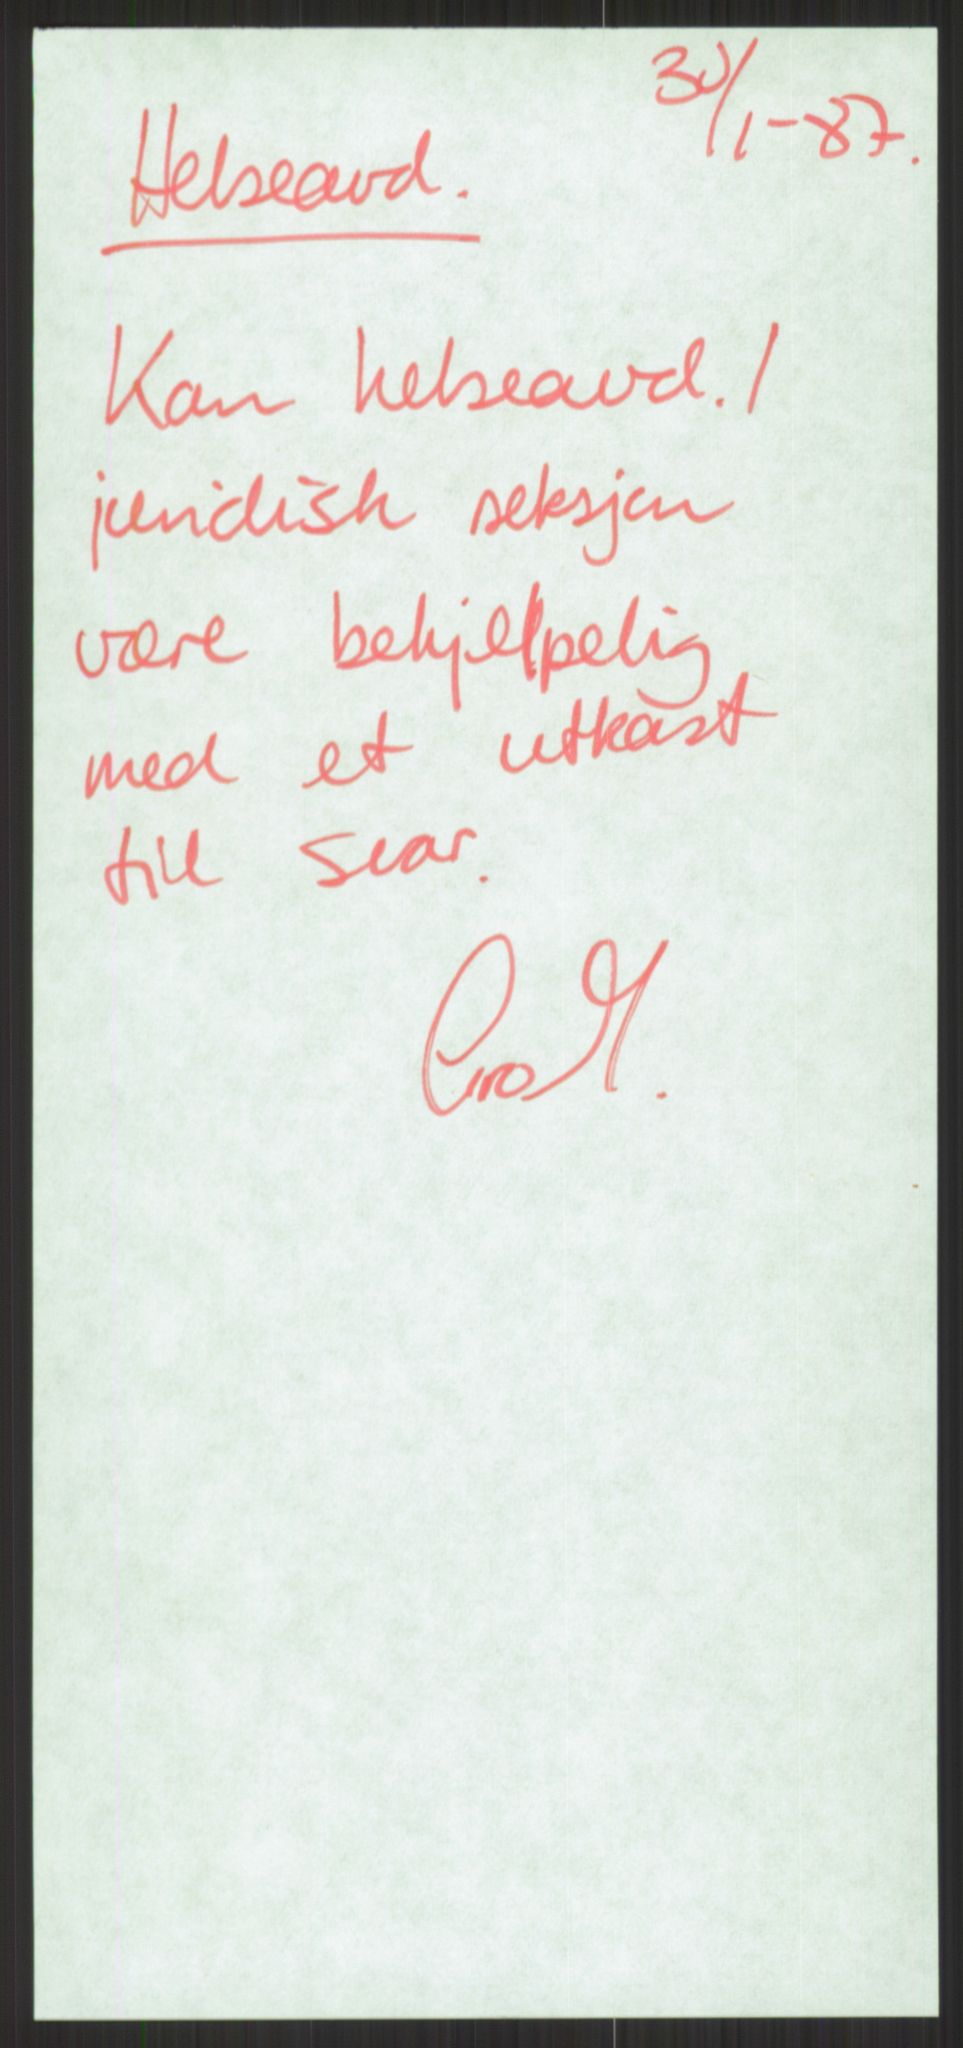 30/1-87.
Helseavd.
Kan helseavd. /
juridisk seksjon
være behjelpelig
med et utkast
till svar.
Gro M.